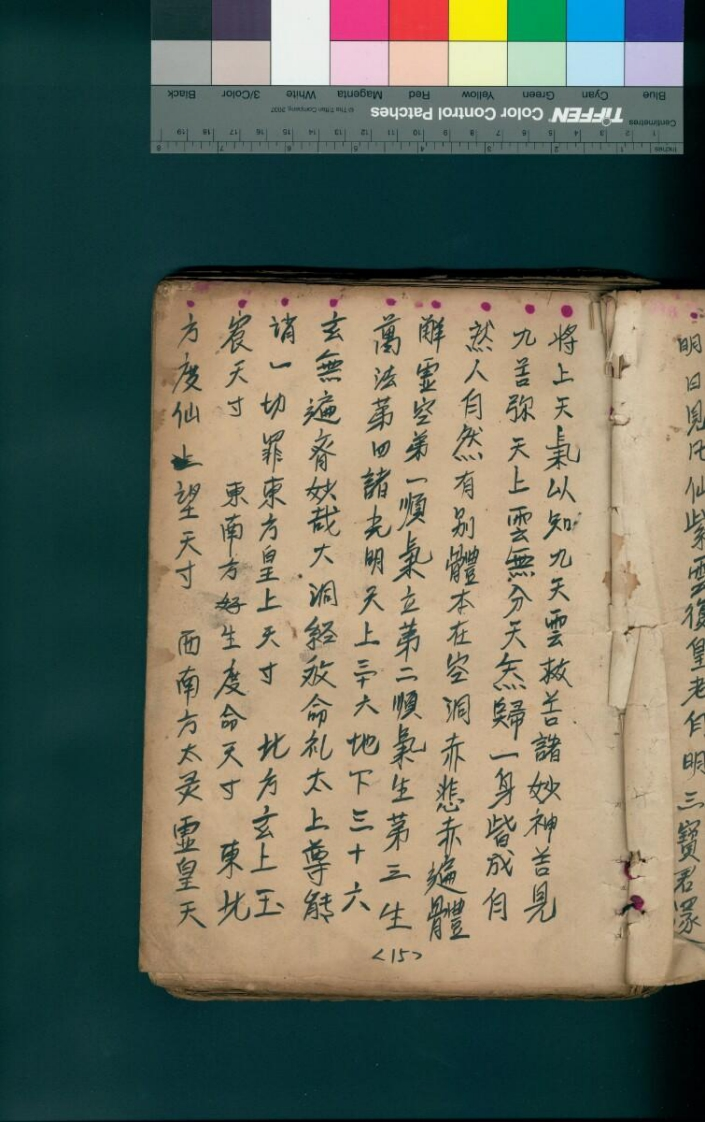 明日見
仙紫雲復皇老自明三寶君
將上天氣以知九天雲救苦諸妙神苦見
九苦弥天上雲無分天𤇆歸一身皆成自
然人自然有别體本在空洞赤悲赤遍體
解靈空第一順氣立第二順氣生第三生
萬法第四諸光明天上三十六地下三十六
玄無遍齊妙哉大洞經敀命礼太上尊能
誚一切罪東方皇上天寸 北方玄上玉
宸天寸 東南方好生度命天寸 東北
方度仙上望天寸 西南方太灵虛皇天
<15>
Black 3/Color White Magenta Red Yellow Green Cyan Blue
TIFFEN Color Control Patches
© The Tiffen Company, 2007
Centimetres
Inches